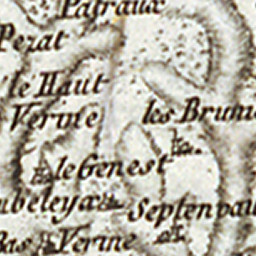 Pafraux
Pezat
le Haut
Verine
les Brun
le Genest
ubeleyæ
Septenvau
Bas Verine